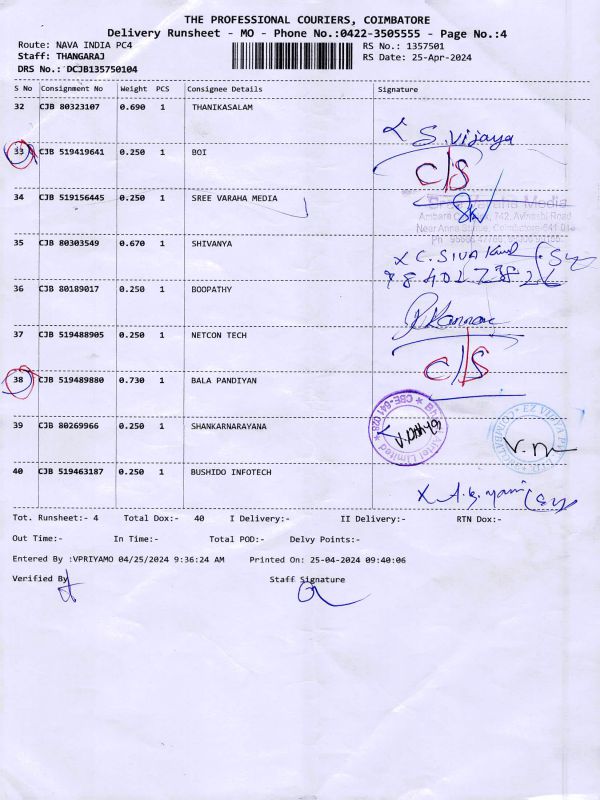 THE PROFESSIONAL COURIERS, COIMBATORE
Delivery Runsheet - MO - Phone No.:0422-3505555 - Page No.:4
Route: NAVA INDIA PC4 RS No.: 1357501
Staff: THANGARAJ RS Date: 25-Apr-2024
DRS No.: DCJB135750104
S No Consignment No Weight PCS Consignee Details Signature
32 CJB 80323107 0.690 1 THANIKASALAM
S. Vijaya
33 CJB 519419641 0.250 1 BOI
C/S
34 CJB 519156445 0.250 1 SREE VARAHA MEDIA
Varaha Media
742, Avinashi Road
35 CJB 80303549 0.670 1 SHIVANYA
X C. SIVA
36 CJB 80189017 0.250 1 BOOPATHY
37 CJB 519488905 0.250 1 NETCON TECH
C/S
38 CJB 519489880 0.730 1 BALA PANDIYAN
39 CJB 80269966 0.250 1 SHANKARNARAYANA
Airtel Limited
CBE-641 028
40 CJB 519463187 0.250 1 BUSHIDO INFOTECH
Tot. Runsheet:- 4 Total Dox:- 40 I Delivery:- II Delivery:- RTN Dox:-
Out Time:- In Time:- Total POD:- Delvy Points:-
Entered By :VPRIYAMO 04/25/2024 9:36:24 AM Printed On: 25-04-2024 09:40:06
Verified By Staff Signature